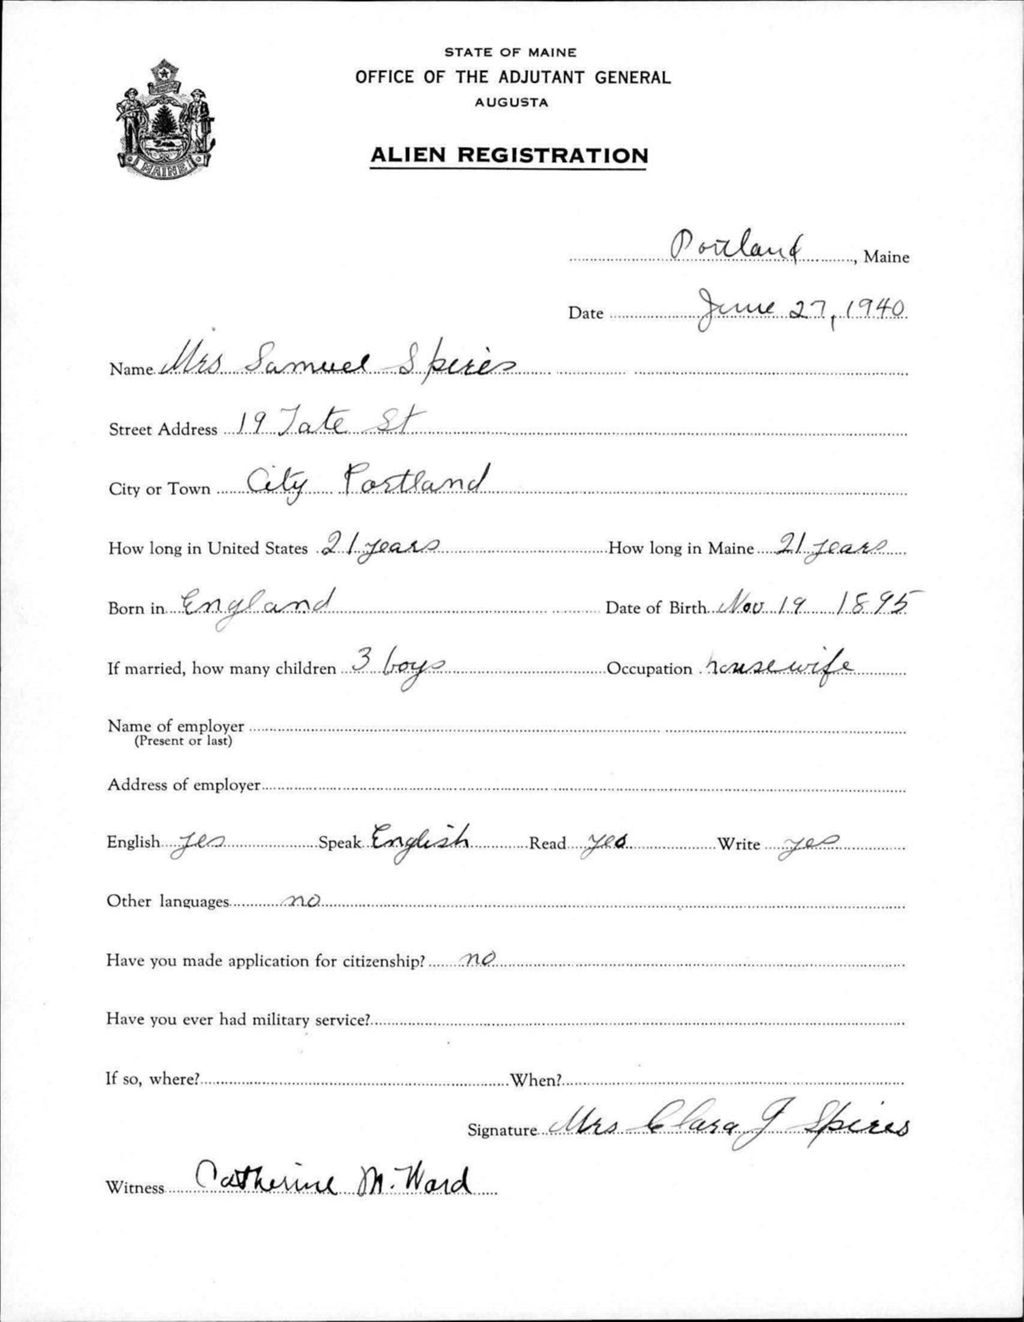 STATE OF MAINE
OFFICE OF THE ADJUTANT GENERAL
AUGUSTA
ALIEN REGISTRATION
MAINE
Portland, Maine
Date June 27, 1940
Name Mrs Samuel Spires
Street Address 19 Tate St
City or Town City Portland
How long in United States 21 years How long in Maine 21 years
Born in England Date of Birth Nov 19 1895
If married, how many children 3 boys Occupation housewife
Name of employer
(Present or last)
Address of employer
English yes Speak English Read yes Write yes
Other languages no
Have you made application for citizenship? no
Have you ever had military service?
If so, where? When?
Signature Mrs Clara J Spires
Witness Catherine M. Ward